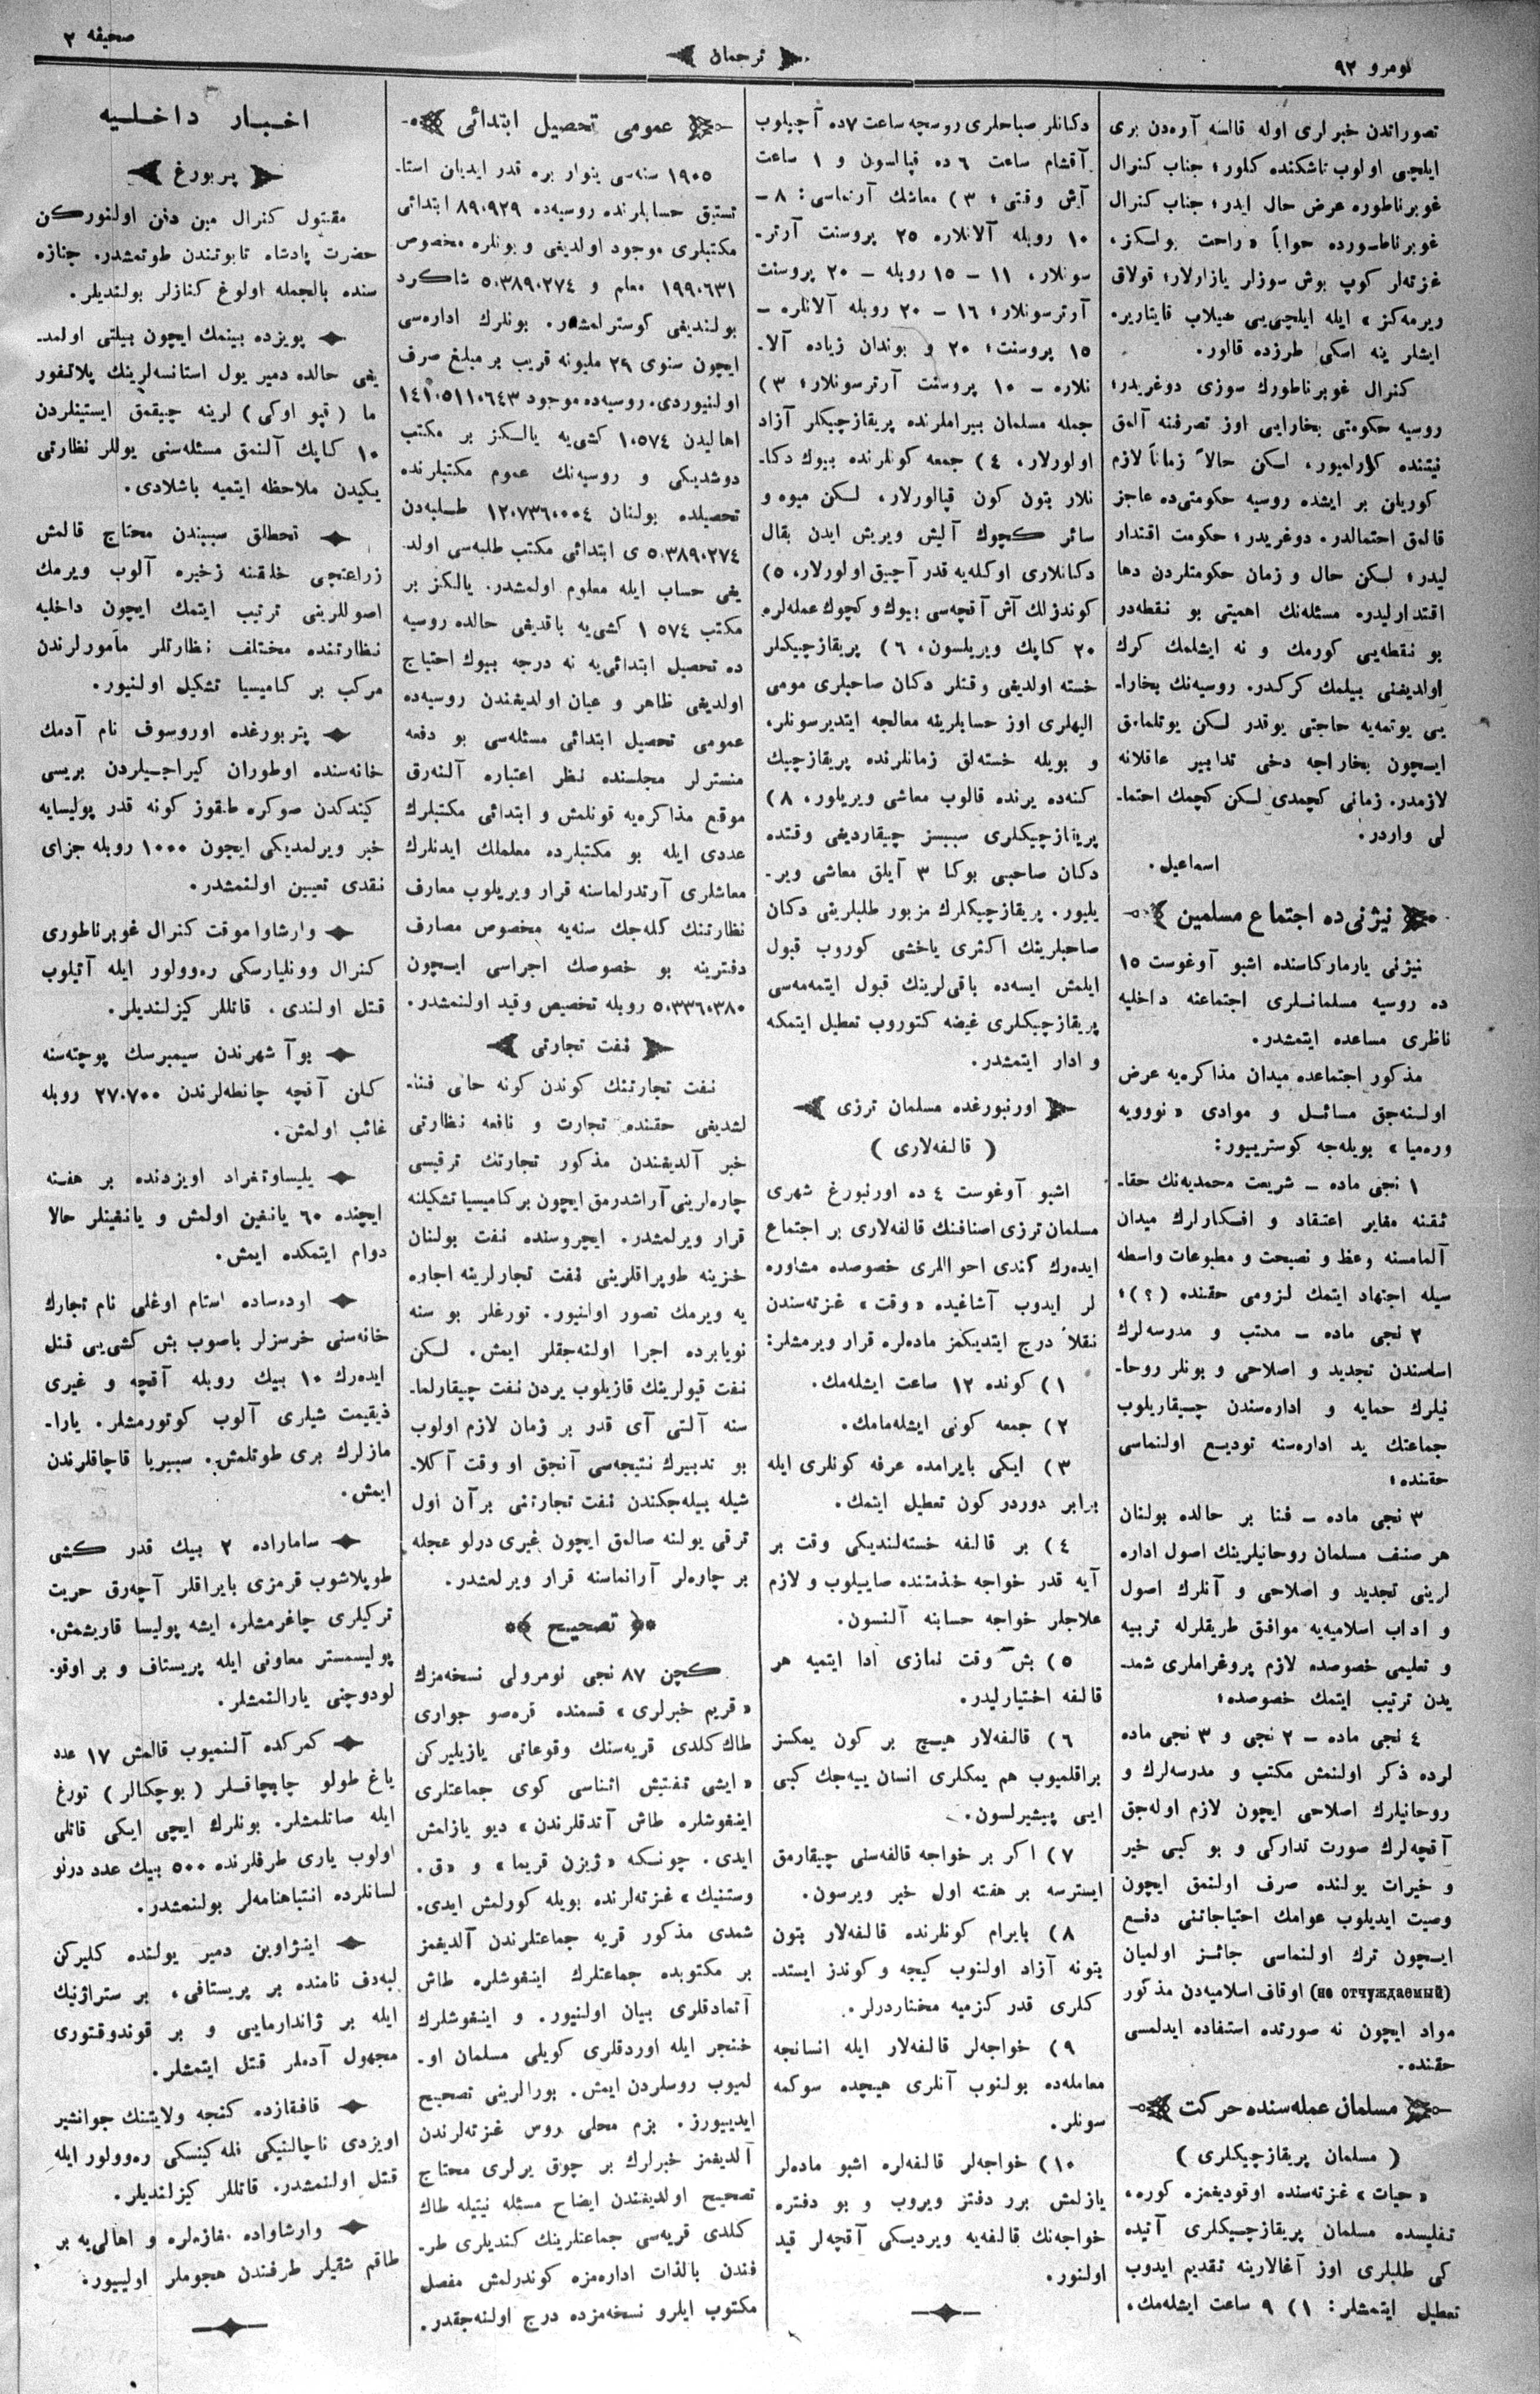 نومرو ٩٢
ترجمان
صحيفه ٢
تصوراتدن خبرلرى اوله قالسه آره‌دن برى
ايلچى اولوب تاشكنده كلور؛ جناب كنرال
غوبرناطوره عرض حال ايدر؛ جناب كنرال
غوبرناطورده جواباً «راحت بولسكز،
غزته‌لر كوپ بوش سوزلر يازارلار؛ قولاق
ويرمه‌كز» ايله ايلچى‌يى قايتارير.
ايشلر ينه اسكى طرزده قالور.
كنرال غوبرناطورك سوزى دوغريدر؛
روسيه حكومتى بخارايى اوز تصرفنه آلمق
نيتنده كورلميور، لسكن حالاً زماناً لازم
كوريلن بر ايشده روسيه حكومتى‌ده عاجز
قالمق احتمالدر. دوغريدر؛ حكومت اقتدار
ليدر؛ لسكن حال و زمان حكومتلردن دها
اقتدارليدر. مسئله‌نك اهميتى بو نقطه‌در
بو نقطه‌يى كورمك و نه ايشلمك كرك
اولديغنى بيلمك كركدر. روسيه‌نك بخارا-
يى يوتمه‌يه حاجتى يوقدر لسكن يوتلمامق
ايچون بخاراجه دخى تدابير عاقلانه
لازمدر. زمانى كچمدى لسكن كچمك احتما-
لى واردر.
اسماعيل.
نيژنى‌ده اجتماع مسلمين
نيژنى يارماركاسنده اشبو آوغوست ١٥
ده روسيه مسلمانلرى اجتماعنه داخليه
ناظرى مساعده ايتمشدر.
مذكور اجتماعده ميدان مذاكره‌يه عرض
اولنه‌جق مسائل و موادى «نوويه
وره‌ميا» بويله‌جه كوستريور:
١ نجى ماده – شريعت محمديه‌نك حقا-
ئقنه مغاير اعتقاد و افكارلرك ميدان
آلمامسنه وعظ و نصيحت و مطبوعات واسطه
سيله اجتهاد ايتمك لزومى حقنده (؟)؛
٢ نجى ماده – مكتب و مدرسه‌لرك
اساسندن تجديد و اصلاحى و بونلر روحا-
نيلرك حمايه و اداره‌سندن چيقاريلوب
جماعتك يد اداره‌سنه توديع اولنماسى
حقنده؛
٣ نجى ماده – فنا بر حالده بولنان
هر صنف مسلمان روحانيلرينك اصول اداره
لرينى تجديد و اصلاحى و آنلرك اصول
و اداب اسلاميه‌يه موافق طريقلرله تربيه
و تعليمى خصوصده لازم پروغراملرى شمد-
يدن ترتيب ايتمك خصوصده؛
٤ نجى ماده – ٢ نجى و ٣ نجى ماده
لرده ذكر اولنمش مكتب و مدرسه‌لرك و
روحانيلرك اصلاحى ايچون لازم اوله‌جق
آقچه‌لرك صورت تداركى و بو كبى خير
و خيرات يولنده صرف اولنمق ايچون
وصيت ايديلوب عوامك احتياجاتنى دفع
ايچون ترك اولنماسى جائز اولميان
(не отчуждаемый) اوقاف اسلاميه‌دن مذكور
مواد ايچون نه صورتده استفاده ايدلمسى
حقنده.
مسلمان عمله‌سنده حركت
(مسلمان پريقازچيكلرى)
«حيات» غزته‌سنده اوقوديغمزه كوره،
تفليسده مسلمان پريقازچيكلرى آتيده
كى طلبلرى اوز آغالارينه تقديم ايدوب
تعطيل ايتمشلر: ١) ٩ ساعت ايشله‌مك،
دكانلر صباحلرى روسچه ساعت ٧ده آچيلوب
آقشام ساعت ٦ ده قپالسون و ١ ساعت
آش وقتى؛ ٣) معاشك آرتماسى: ٨ –
١٠ روبله آلانلاره ٢٥ پروسنت آرتر-
سونلار، ١١ – ١٥ روبله – ٢٠ پروسنت
آرترسونلار؛ ١٦ – ٢٠ روبله آلانلره –
١٥ پروسنت؛ ٢٠ و بوندان زياده آلا-
نلاره – ١٠ پروسنت آرترسونلار؛ ٣)
جمله مسلمان بيراملرنده پريقازچيكلر آزاد
اولورلار، ٤) جمعه كونلرنده بيوك دكا-
نلار بتون كون قپالورلار، لسكن ميوه و
سائر كچوك آليش ويريش ايدن بقال
دكانلارى اوكله‌يه قدر آچيق اولورلار، ٥)
كوندزلك آش آقچه‌سى بيوك و كچوك عمله‌لره
٢٠ كاپك ويريلسون، ٦) پريقازچيكلر
خسته اولديغى وقتلر دكان صاحبلرى مومى
اليهلرى اوز حسابلرينه معالجه ايتديرسونلر،
و بويله خسته‌لق زمانلرنده پريقازچيك
كنه‌ده يرنده قالوب معاشى ويريلور، ٨)
پريقازچيكلرى سببسز چيقارديغى وقتده
دكان صاحبى بوكا ٣ آيلق معاشى وير-
يليور. پريقازچيكلرك مزبور طلبلرينى دكان
صاحبلرينك اكثرى ياخشى كوروب قبول
ايلمش ايسه‌ده باقى‌لرينك قبول ايتمه‌مه‌سى
پريقازچيكلرى غيضه كتوروب تعطيل ايتمكه
و ادار ايتمشدر.
اورنبورغده مسلمان ترزى
(قالفه‌لارى)
اشبو آوغوست ٤ ده اورنبورغ شهرى
مسلمان ترزى اصنافنك قالفه‌لارى بر اجتماع
ايده‌رك كندى احواللرى خصوصده مشاوره
لر ايدوب آشاغيده «وقت» غزته‌سندن
نقلاً درج ايتديكمز ماده‌لره قرار ويرمشلر:
١) كونده ١٢ ساعت ايشله‌مك.
٢) جمعه كونى ايشله‌مامك.
٣) ايكى بايرامده عرفه كونلرى ايله
برابر دوردر كون تعطيل ايتمك.
٤) بر قالفه خسته‌لنديكى وقت بر
آيه قدر خواجه خذمتنده صاييلوب و لازم
علاجلر خواجه حسابنه آلنسون.
٥) بش وقت نمازى ادا ايتميه هر
قالفه اختيارليدر.
٦) قالفه‌لار هيچ بر كون يمكسز
براقلميوب هم يمكلرى انسان ييه‌جك كبى
ايى پيشيرلسون.
٧) اكر بر خواجه قالفه‌سنى چيقارمق
ايسترسه بر هفته اول خبر ويرسون.
٨) بايرام كونلرنده قالفه‌لار بتون
بتونه آزاد اولنوب كيجه و كوندز ايستد-
كلرى قدر كزميه مختاردرلر.
٩) خواجه‌لر قالفه‌لار ايله انسانجه
معامله‌ده بولنوب آنلرى هيچده سوكمه
سونلر.
١٠) خواجه‌لر قالفه‌لره اشبو ماده‌لر
يازلمش برر دفتر ويروب و بو دفتره
خواجه‌نك قالفه‌يه ويرديكى آقچه‌لر قيد
اولنور.
عمومى تحصيل ابتدائى
١٩٠٥ سنه‌سى ينوار بره قدر ايديلن استا-
تستيق حسابلرنده روسيه‌ده ٨٩٠٩٢٩ ابتدائى
مكتبلرى موجود اولديغى و بونلره مخصوص
١٩٩٠٦٣١ معلم و ٥٠٣٨٩٠٢٧٤ شاكرد
بولنديغى كوسترلمشدر. بونلرك اداره‌سى
ايچون سنوى ٢٩ مليونه قريب بر مبلغ صرف
اولنيوردى. روسيه‌ده موجود ١٤١٠٥١١٠٦٤٣
اهاليدن ١٠٥٧٤ كشى‌يه يالكز بر مكتب
دوشديكى و روسيه‌نك عموم مكتبلرنده
تحصيلده بولنان ١٢٠٧٣٦٠٠٠٤ طلبه‌دن
٥٠٣٨٩٠٢٧٤ ى ابتدائى مكتب طلبه‌سى اولد-
يغى حساب ايله معلوم اولمشدر. يالكز بر
مكتب ١٥٧٤ كشى‌يه باقديغى حالده روسيه
ده تحصيل ابتدائى‌يه نه درجه بيوك احتياج
اولديغى ظاهر و عيان اولديغندن روسيه‌ده
عمومى تحصيل ابتدائى مسئله‌سى بو دفعه
منسترلر مجلسنده نظر اعتباره آلنه‌رق
موقع مذاكره‌يه قونلمش و ابتدائى مكتبلرك
عددى ايله بو مكتبلرده معلملك ايدنلرك
معاشلرى آرتدرلماسنه قرار ويريلوب معارف
نظارتنك كله‌جك سنه‌يه مخصوص مصارف
دفترينه بو خصوصك اجراسى ايچون
٥٠٣٣٦٠٣٨٠ روبله تخصيص وقيد اولنمشدر.
نفت تجارتى
نفت تجارتنك كوندن كونه حالى فنا-
لشديغى حقنده تجارت و نافعه نظارتى
خبر آلديغندن مذكور تجارتك ترقيسى
چاره‌لرينى آراشدرمق ايچون بر كاميسيا تشكيلنه
قرار ويرلمشدر. ايچروسنده نفت بولنان
خزينه طوپراقلرينى نفت تجارلرينه اجاره
يه ويرمك تصور اولنيور. تورغلر بو سنه
نويابرده اجرا اولنه‌جقلر ايمش. لسكن
نفت قيولرينك قازيلوب يردن نفت چيقارلما-
سنه آلتى آى قدر بر زمان لازم اولوب
بو تدبيرك نتيجه‌سى آنجق او وقت آكلا-
شيله بيله‌جكندن نفت تجارتنى بر آن اول
ترقى يولنه سالمق ايچون غيرى درلو عجله
بر چاره‌لر آرانماسنه قرار ويرلمشدر.
تصحيح
كچن ٨٧ نجى نومرولى نسخه‌مزك
«قريم خبرلرى» قسمنده قره‌صو جوارى
طاك كلدى قريه‌سنك وقوعاتى يازيليركن
«ايشى تفتيش اثناسى كوى جماعتلرى
اينغوشلره طاش آتدقلرندن» ديو يازلمش
ايدى. چونكه «ژيزن قريما» و «ق.
وستنيك» غزته‌لرنده بويله كورلمش ايدى.
شمدى مذكور قريه جماعتلرندن آلديغمز
بر مكتوبده جماعتلرك اينغوشلره طاش
آتمادقلرى بيان اولنيور. و اينغوشلرك
خنجر ايله اوردقلرى كويلى مسلمان او-
لميوب روسلردن ايمش. بورالرينى تصحيح
ايدييورز. بزم محلى روس غزته‌لرندن
آلديغمز خبرلرك بر چوق يرلرى محتاج
تصحيح اولديغندن ايضاح مسئله نيتيله طاك
كلدى قريه‌سى جماعتلرينك كنديلرى طر-
فندن بالذات اداره‌مزه كوندرلمش مفصل
مكتوب ايلرو نسخه‌مزده درج اولنه‌جقدر.
اخبار داخليه
پربورغ
مقتول كنرال مين دفن اولنوركن
حضرت پادشاه تابوتندن طوتمشدر. جنازه
سنده بالجمله اولوغ كنازلر بولنديلر.
پويزده بينمك ايچون بيلتى اولمد-
يغى حالده دمير يول استانسه‌لرينك پلاتفور
ما (قپو اوكى) لرينه چيقمق ايستينلردن
١٠ كاپك آلنمق مسئله‌سنى يوللر نظارتى
يكيدن ملاحظه ايتميه باشلادى.
تحطلق سببندن محتاج قالمش
زراعتچى خلقنه زخيره آلوب ويرمك
اصوللرينى ترتيب ايتمك ايچون داخليه
نظارتنده مختلف نظارتلر مأمورلرندن
مركب بر كاميسيا تشكيل اولنيور.
پتربورغده اوروسوف نام آدمك
خانه‌سنده اوطوران كيراجيلردن بريسى
كيتدكدن صوكره طقوز كونه قدر پوليسايه
خبر ويرلمديكى ايچون ١٠٠٠ روبله جزاى
نقدى تعيين اولنمشدر.
وارشاوا موقت كنرال غوبرناطورى
كنرال وونليارسكى ره‌وولور ايله آتيلوب
قتل اولندى. قاتللر كيزلنديلر.
بوآ شهرندن سيمبرسك پوچته‌سنه
كلن آقچه چانطه‌لرندن ٢٧٠٧٠٠ روبله
غائب اولمش.
يليساوتغراد اويزدنده بر هفته
ايچنده ٦٠ يانغين اولمش و يانغينلر حالا
دوام ايتمكده ايمش.
اوده‌ساده استام اوغلى نام تجارك
خانه‌سنى خرسزلر باصوب بش كشى‌يى قتل
ايده‌رك ١٠ بيك روبله آقچه و غيرى
ذيقيمت شيلرى آلوب كوتورمشلر. يارا-
مازلرك برى طوتلمش. سيبيريا قاچاقلرندن
ايمش.
ساماراده ٢ بيك قدر كشى
طوپلاشوب قرمزى بايراقلر آچه‌رق حريت
تركيلرى چاغرمشلر، ايشه پوليسا قاريشمش.
پوليسمستر معاونى ايله پريستاف و بر اوقو-
لودوچنى يارالنمشلر.
كمركده آلنميوب قالمش ١٧ عدد
ياغ طولو چاپچاقلر (بوچكالر) تورغ
ايله صاتلمشلر. بونلرك ايچى ايكى قاتلى
اولوب يارى طرفلرنده ٥٠٠ بيك عدد درلو
لسانلرده انتباهنامه‌لر بولنمشدر.
اينژاوين دمير يولنده كليركن
لبه‌دف نامنده بر پريستافى، بر ستراژنيك
ايله بر ژاندارمايى و بر قوندوقتورى
مجهول آدملر قتل ايتمشلر.
قافقازده كنجه ولايتنك جوانشير
اويزدى ناچالنيكى فله‌كينسكى ره‌وولور ايله
قتل اولنمشدر. قاتللر كيزلنديلر.
وارشاواده مغازه‌لره و اهالى‌يه بر
طاقم شقيلر طرفندن هجوملر اولييور.